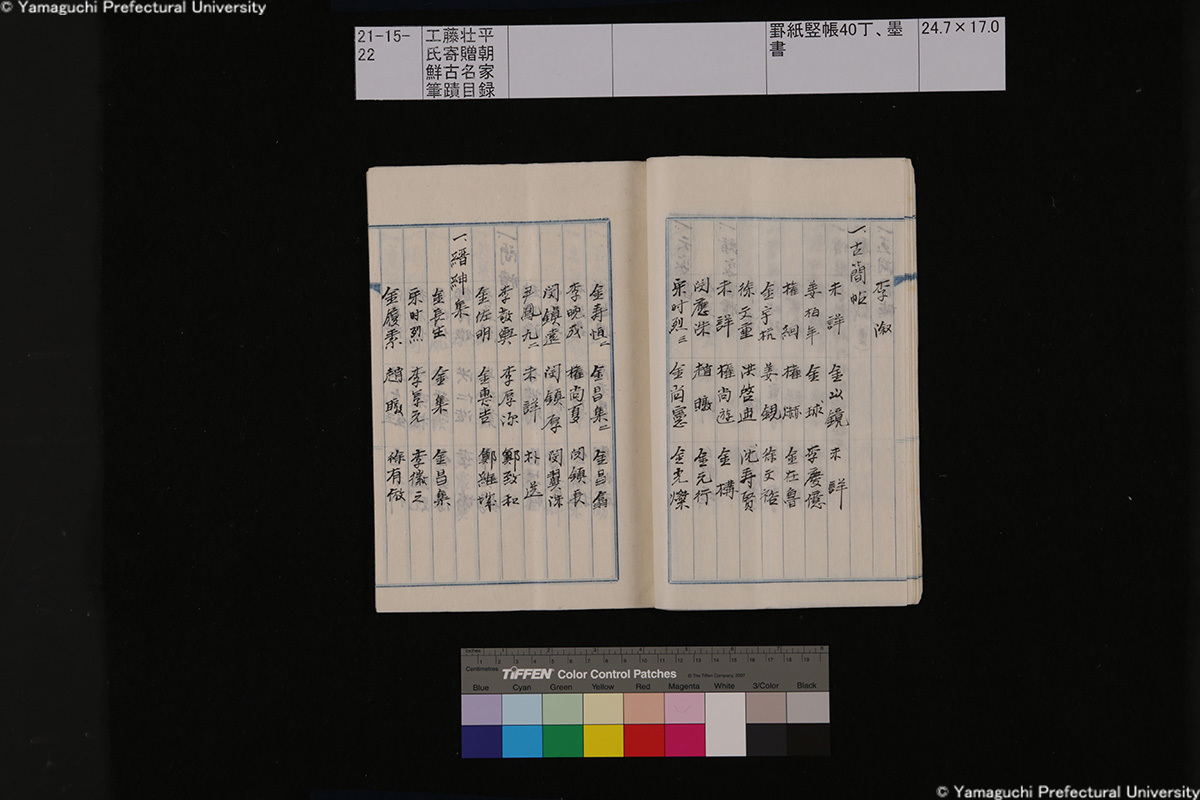 © Yamaguchi Prefectural University
21-15-
22
工藤壮平
氏寄贈朝
鮮古名家
筆蹟目録
罫紙竪帳40丁、墨
書
24.7×17.0
李 淑
一、古簡帖
未詳 金以鏡 未詳
姜柏年 金球 李慶億
権綱 権 金在魯
金宇杭 姜鋧 徐文裕
徐文重 洪啓迪 沈寿賢
未詳 権尚遊 金構
閔應洙 趙 金元行
宋时烈三 金尚憲 金光燦
金寿恒二 金昌集二 金昌翕
李晩成 権尚夏 閔鎮長
閔鎮遠 閔鎮厚 閔翼洙
尹鳳九二 未詳 朴
李敬輿 李厚源 鄭致和
金佐明 金惠 鄭維
一、縉紳集
金長生 金集 金昌集
宋时烈 李 元 李徵三
金履素 趙 徐有
Inches
Centimetres
TIFFEN Color Control Patches
© The Tiffen Company, 2007
Blue Cyan Green Yellow Red Magenta White 3/Color Black
© Yamaguchi Prefectural University